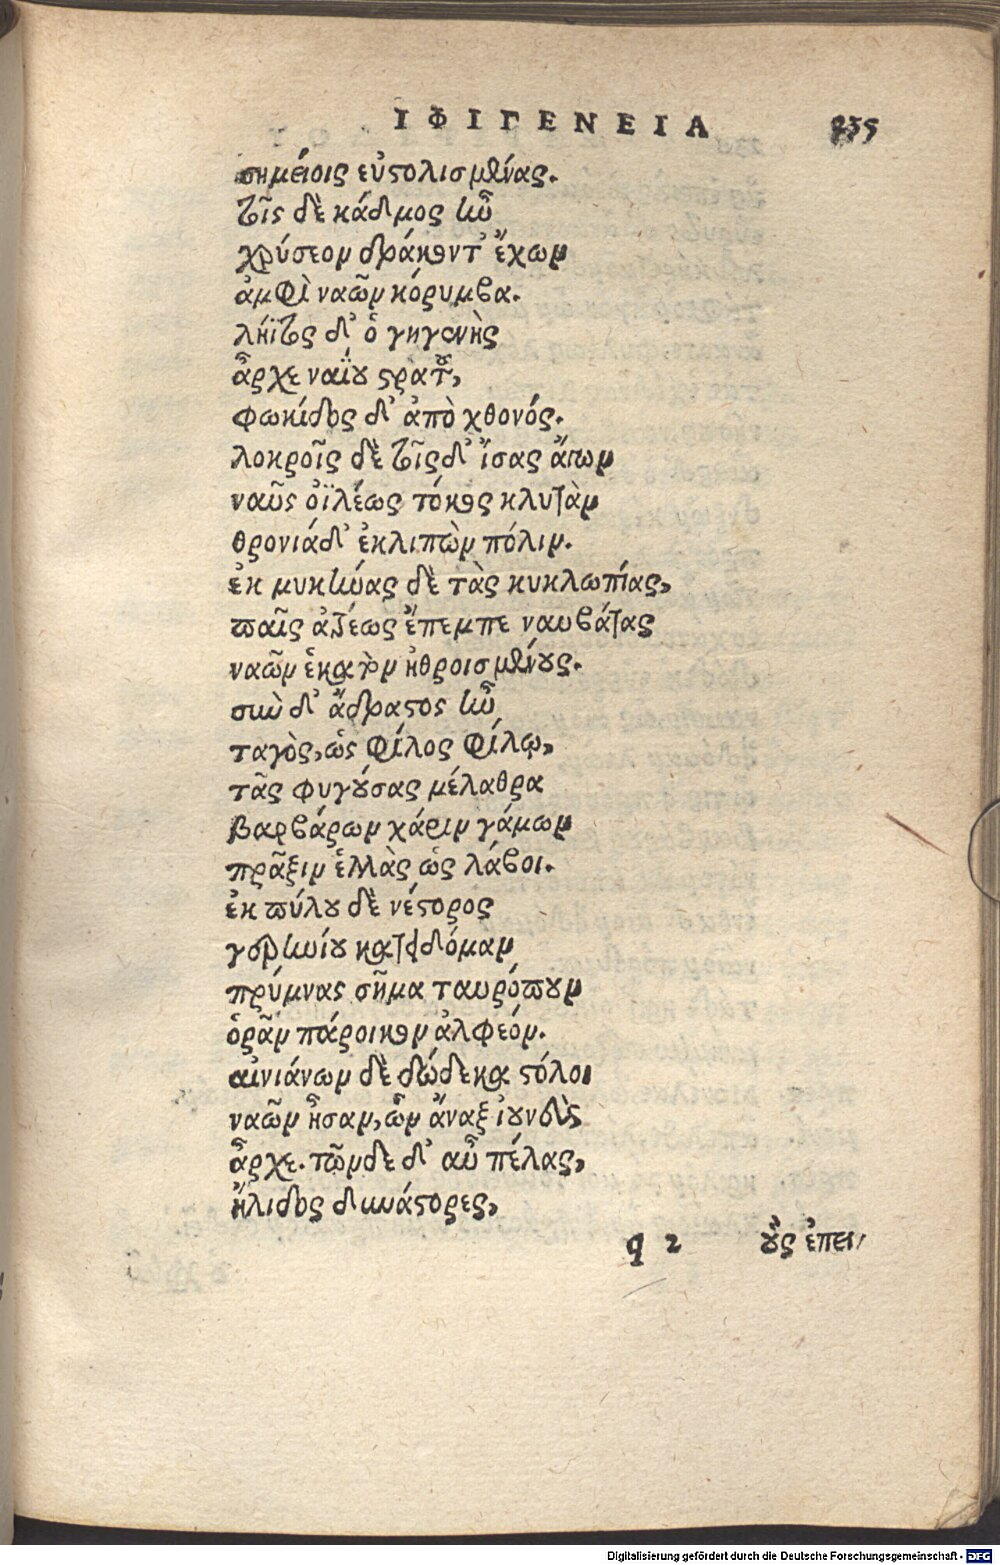 ΙΦΙΓΕΝΕΙΑ 235
σημείοις εὐστολισμένας.
τοῖς δὲ κάδμος ἦν
χρύσεον δράκοντ' ἔχων
ἀμφὶ ναῶν κόρυμβα.
λήϊτος δ' ὁ γηγενὴς
ἆρχε ναΐου στρατοῦ,
φωκίδος δ' ἀπὸ χθονός.
λοκροῖς δὲ τοῖς δ' ἴσας ἄγων
ναῦς οἰλέως τόκος κλυτὰν
θρονιάδ' ἐκλιπὼν πόλιν.
ἐκ μυκήνας δὲ τὰς κυκλωπίας,
παῖς ἀτρέως ἔπεμπε ναυβάτας
ναῶν ἑκατὸν ἠθροισμένους.
σὺν δ' ἄδραστος ἦν
ταγὸς, ὡς φίλος φίλῳ,
τᾶς φυγούσας μέλαθρα
βαρβάρων χάριν γάμων
πρᾶξιν ἑλλὰς ὡς λάβοι.
ἐκ πύλου δὲ νέστορος
γερηνίου κατειδόμαν
πρύμνας σῆμα ταυρόπουν
ὁρᾶν πάροικον ἀλφεόν.
αἰνιάνων δὲ δώδεκα στόλοι
ναῶν ἦσαν, ὧν ἄναξ ἰουνεὺς
ἆρχε. τῶνδε δ' αὖ πέλας,
ἤλιδος δυνάστορες,
q 2 οὓς ἐπει
Digitalisierung gefördert durch die Deutsche Forschungsgemeinschaft - DFG